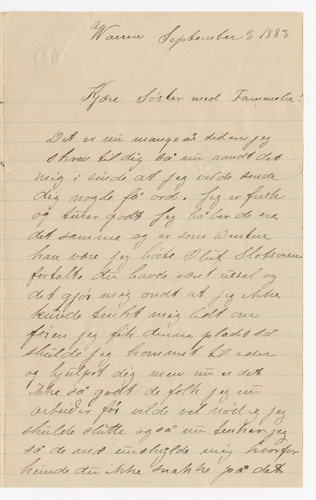 Warren September 3 1883
Kjære Søster med Fammelie!
Det er nu mange år siden jeg
skrev til dig så nu randt det
mig i sinde at jeg vilde sende
dig nogle få ord. Jeg er frisk
og lever godt jeg håber de ere
det samme og er som venten
kan være jeg hørte Oluf
fortalte du havde veret ussel og
det gjør mig ondt at jeg ikke
kunde tenkt mig lidt om
føren jeg fik denne plads så
skulde jeg kommet til eder
og hjulpet dig men nu er det
ikke så godt de folk jeg nu
arbeider for vilde vel nødig jeg
skulde slutte også nu tenker jeg
så de med undskylde mig hvorfor
kunde du ikke snakke på det